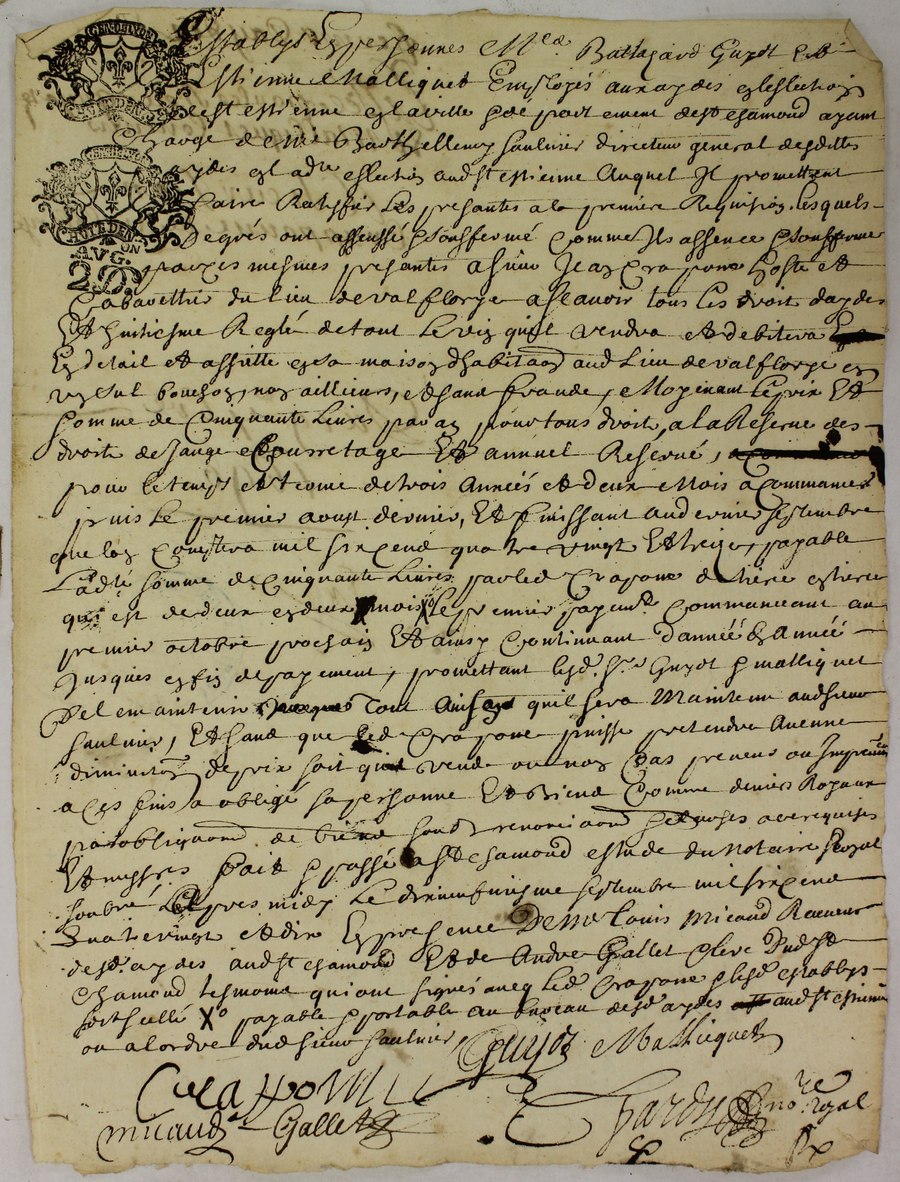 Establys En personnes Mes Baltazard Guyot et
Estienne Malliquet Employés aux aydes eslection
de st estienne et la ville & departement de st chamond ayant
Charge de Mre Barthellemy Saulnier directeur general desdittes
aydes et ad eslection aud st estienne Auquel Il promettent
faire Ratiffier Les presantes a la premiere Requision, lesquels
de grés ont assensé & sousfermé comme Ils assence & sousferme
par ces mesmes presantes a sieur Jean Crapone hoste et
Cabarettier du lieu de valflorge asscavoir tous les droit daydes
Et huitiesme Reglé de tout Le vin quil vendra et debitera
En detail et assiette en sa maison dhabitaon aud Lieu de valflorge en
un seul bouchon, non ailliurs, et sans fraude, Moyenant le prix Et
somme de Cinquante Livres par an pour tous droit, a la Reserve des
droits de Jauge Courretage Et annuel Reservé,
pour le temps et terme de trois Années et deux Mois a Commancer
puis Le premier aoust dernier, Et finissant au dernier septembre
que lon contera mil six cens quatre vingt Et treize, payable
Lad somme de Cinquante Livres par led Crapone de tiere en tiere
qui est de deux en deux mois Xo le premier payent Commanceant au
premier octobre prochain Et ainsy Continuant d'année En Année
Jusques en fin de payement, promettant lesd. srs Guyot & malliquet
de le maintenir Tout Ainsy quil sera Maintenu aud sieur
saulnier, Et sans que led Crapone puisse pretendre Aucune
diminuon de prix soit quil vende ou non
a ces fins a obligé sa personne Et Biens Comme deniers Royaux
par obligaons de biens soub renonciaons & clauses a ce requises
Et necess. fait & passé a st chamond estude du Notaire Royal
soubné apres midy Le dixneufviesme septembre mil six cens
Quatrevingt et dix En presence De Me Louis Micaud Receveur
desd. aydes aud st chamond Et de André Gallet Clerc dud st
Chamond tesmoins qui ont signés avecq Led Crapone & lesd establys
Xo payable & portable au bureau desd aydes aud st estienne
ou a lordre dud sieur saulnier,
Guyot Malliquet
Crapone
Micaud Gallet Chardy nore Royal